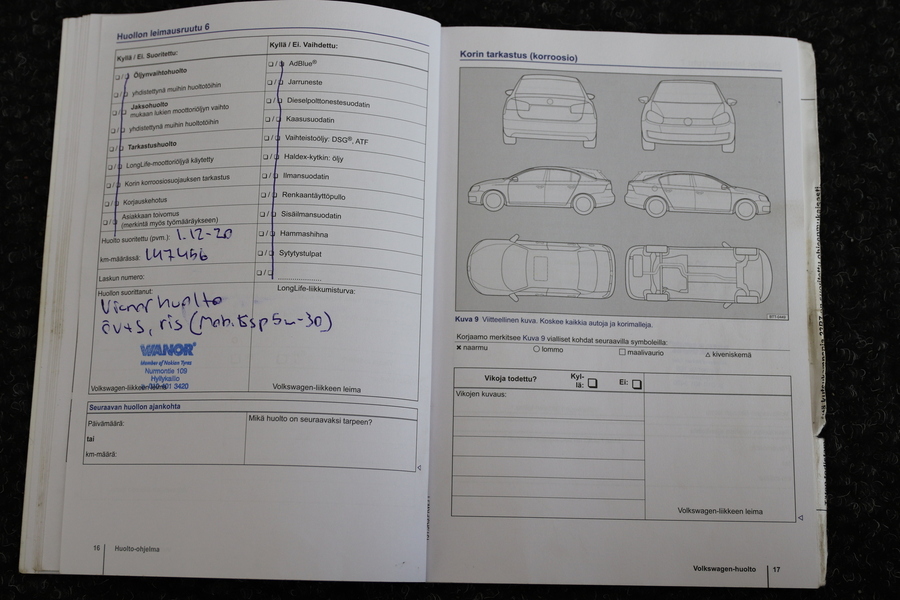 Huollon leimausruutu 6
Kyllä / Ei. Suoritettu:
❑ / ❑ Öljynvaihtohuolto
❑ / ❑ yhdistettynä muihin huoltotöihin
❑ / ❑ Jaksohuolto
mukaan lukien moottoriöljyn vaihto
❑ / ❑ yhdistettynä muihin huoltotöihin
❑ / ❑ Tarkastushuolto
❑ / ❑ LongLife-moottoriöljyä käytetty
❑ / ❑ Korin korroosiosuojauksen tarkastus
❑ / ❑ Korjauskehotus
❑ / ❑ Asiakkaan toivomus
(merkintä myös työmääräykseen)
Huolto suoritettu (pvm.): 1.12-20
km-määrässä: 147456
Laskun numero:
Huollon suorittanut:
Vianor huolto
öv+s, ris (Mob.
5w-30)
VIANOR
Member of Nokian Tyres
Nurmontie 109
Hyllykallio
401 3420
Volkswagen-liikkeen leima
Kyllä / Ei. Vaihdettu:
❑ / ❑ AdBlue®
❑ / ❑ Jarruneste
❑ / ❑ Dieselpolttonestesuodatin
❑ / ❑ Kaasusuodatin
❑ / ❑ Vaihteistoöljy: DSG®, ATF
❑ / ❑ Haldex-kytkin: öljy
❑ / ❑ Ilmansuodatin
❑ / ❑ Renkaantäyttöpullo
❑ / ❑ Sisäilmansuodatin
❑ / ❑ Hammashihna
❑ / ❑ Sytytystulpat
❑ / ❑ ..............
LongLife-liikkumisturva:
Volkswagen-liikkeen leima
Seuraavan huollon ajankohta
Päivämäärä:
tai
km-määrä:
Mikä huolto on seuraavaksi tarpeen?
16 Huolto-ohjelma
Korin tarkastus (korroosio)
Kuva 9 Viitteellinen kuva. Koskee kaikkia autoja ja korimalleja.
Korjaamo merkitsee Kuva 9 vialliset kohdat seuraavilla symboleilla:
✖ naarmu ○ lommo □ maalivaurio △ kiveniskemä
Vikoja todettu? Kyl-
lä: ❑ Ei: ❑
Vikojen kuvaus:
Volkswagen-liikkeen leima
Volkswagen-huolto 17